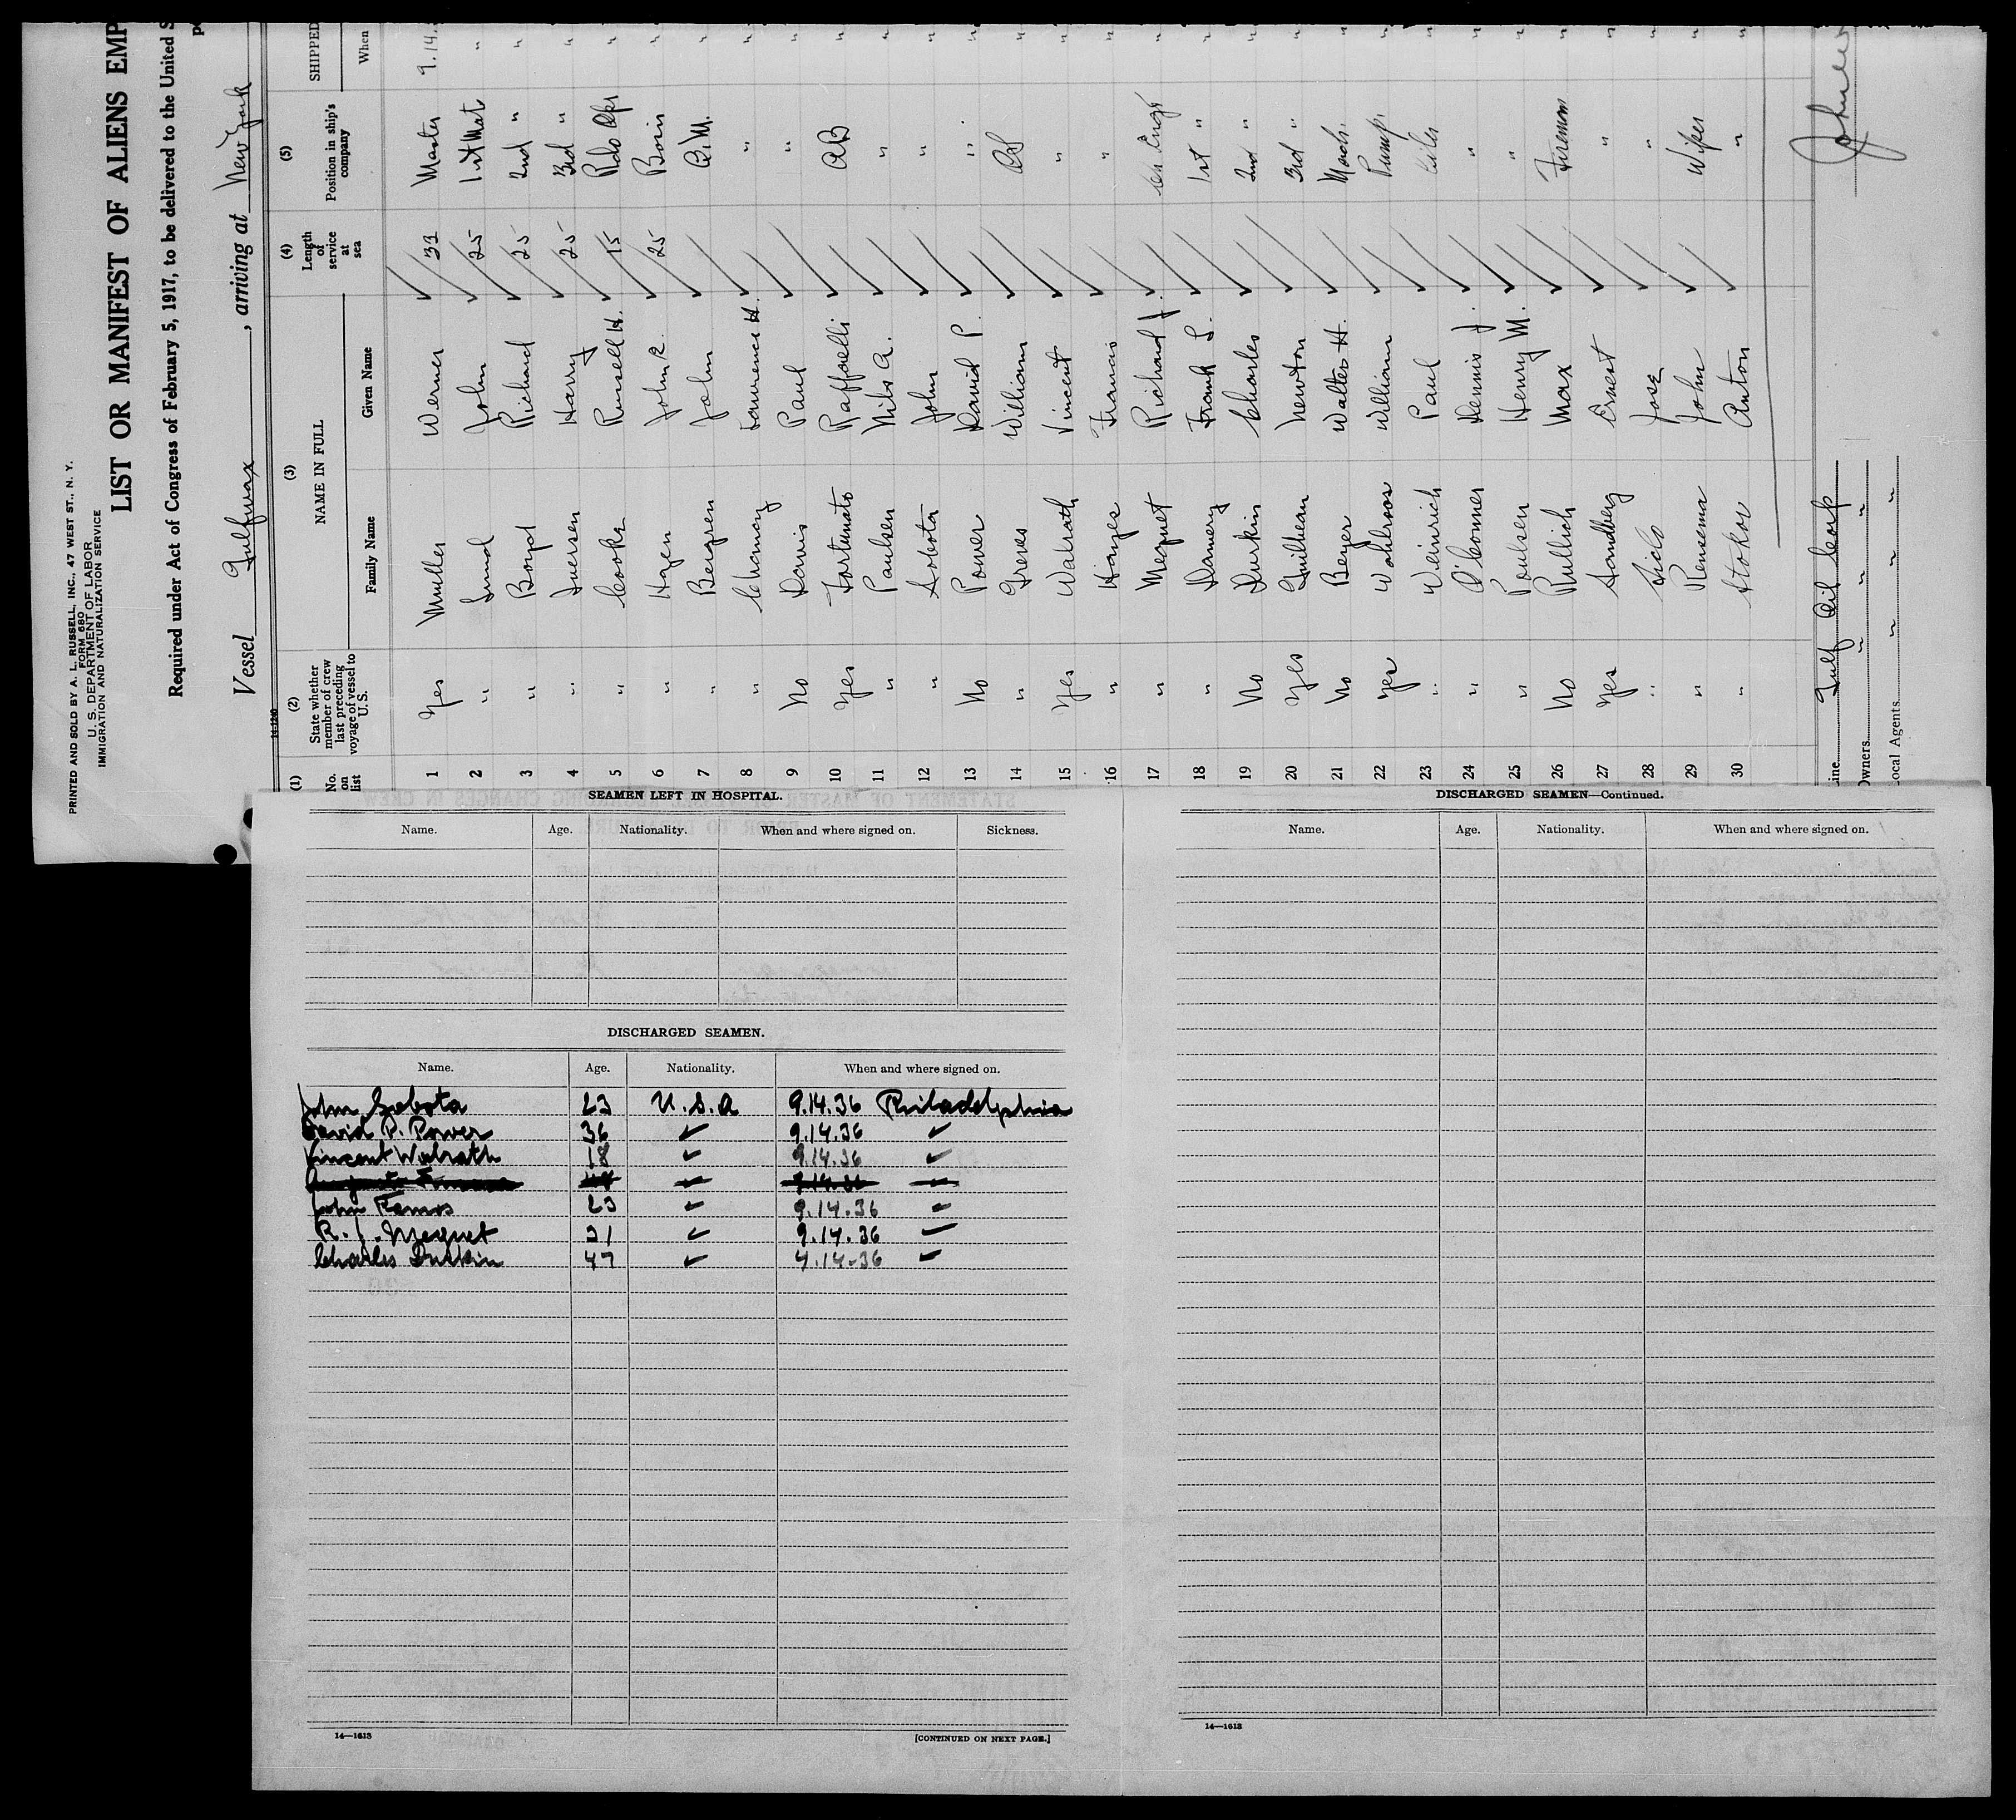 PRINTED AND SOLD BY A. L. RUSSELL, INC., 47 WEST ST., N. Y.
FORM 680
U. S. DEPARTMENT OF LABOR
IMMIGRATION AND NATURALIZATION SERVICE
LIST OR MANIFEST OF ALIENS EMP
Required under Act of Congress of February 5, 1917, to be delivered to the United S
Vessel Gulfwax, arriving at New York
14-1240
(1) (2) (3) (4) (5)
No. on list State whether member of crew last preceding voyage of vessel to U.S. NAME IN FULL Length of service at sea Position in ship's company SHIPPED
Family Name Given Name When
1 Yes Muller Werner 33 Master 9.14.
2 " Lund John 25 1st Mat "
3 " Boyd Richard 25 2nd " "
4 " Iversen Harry 25 3rd " "
5 " Cooke Russell H. 15 Rdo Opr "
6 " Hagen John R. 25 Bosin "
7 " Bergren John Q.M. "
8 " Chamoy Lawrence H. " "
9 No Davis Paul " "
10 Yes Fortunato Raffaelli AB "
11 " Paulsen Nils A. " "
12 " Sobota John " "
13 No Power David P. " "
14 " Greves William OS "
15 Yes Walrath Vincent " "
16 " Hayes Francis " "
17 " Mequet Richard J. Ch Engr "
18 " Damery Frank S. 1st " "
19 No Durkin Charles 2nd " "
20 Yes Quilhan Newton 3rd " "
21 No Beyer Walter H. Mach. "
22 Yes Wohlroos William Pump. "
23 " Weinrich Paul Oiler "
24 " O'Connor Dennis J. " "
25 " Poulsen Henry M. " "
26 No Rullich Max Fireman "
27 Yes Sandberg Ernest " "
28 " Jose " "
29 " Rensema John Wiper "
30 " Stokoe Anton " "
ine Gulf Oil Corp John
Owners " " " "
ocal Agents " " " "
SEAMEN LEFT IN HOSPITAL.
Name. Age. Nationality. When and where signed on. Sickness.
DISCHARGED SEAMEN.
Name. Age. Nationality. When and where signed on.
John Sobota 23 U.S.A 9.14.36 Philadelphia
David P. Power 36 ✓ 9.14.36 ✓
Vincent Walrath 18 ✓ 9.14.36 ✓
John Ramos 23 ✓ 9.14.36 ✓
R. J. Mequet 31 ✓ 9.14.36 ✓
Charles Durkin 47 ✓ 9.14-36 ✓
14—1613
[CONTINUED ON NEXT PAGE.]
DISCHARGED SEAMEN—Continued.
Name. Age. Nationality. When and where signed on.
14—1613